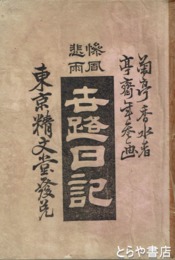 菊亭香水著
亭斎年参画
慘風
悲雨
世路日記
東京精文堂發兌
とらや書店